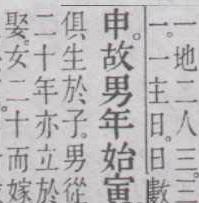 一地二人三。三
一。一主日。日數
申。故男年始寅
俱生於子。男從
二十年亦立於
娶。女二十而嫁